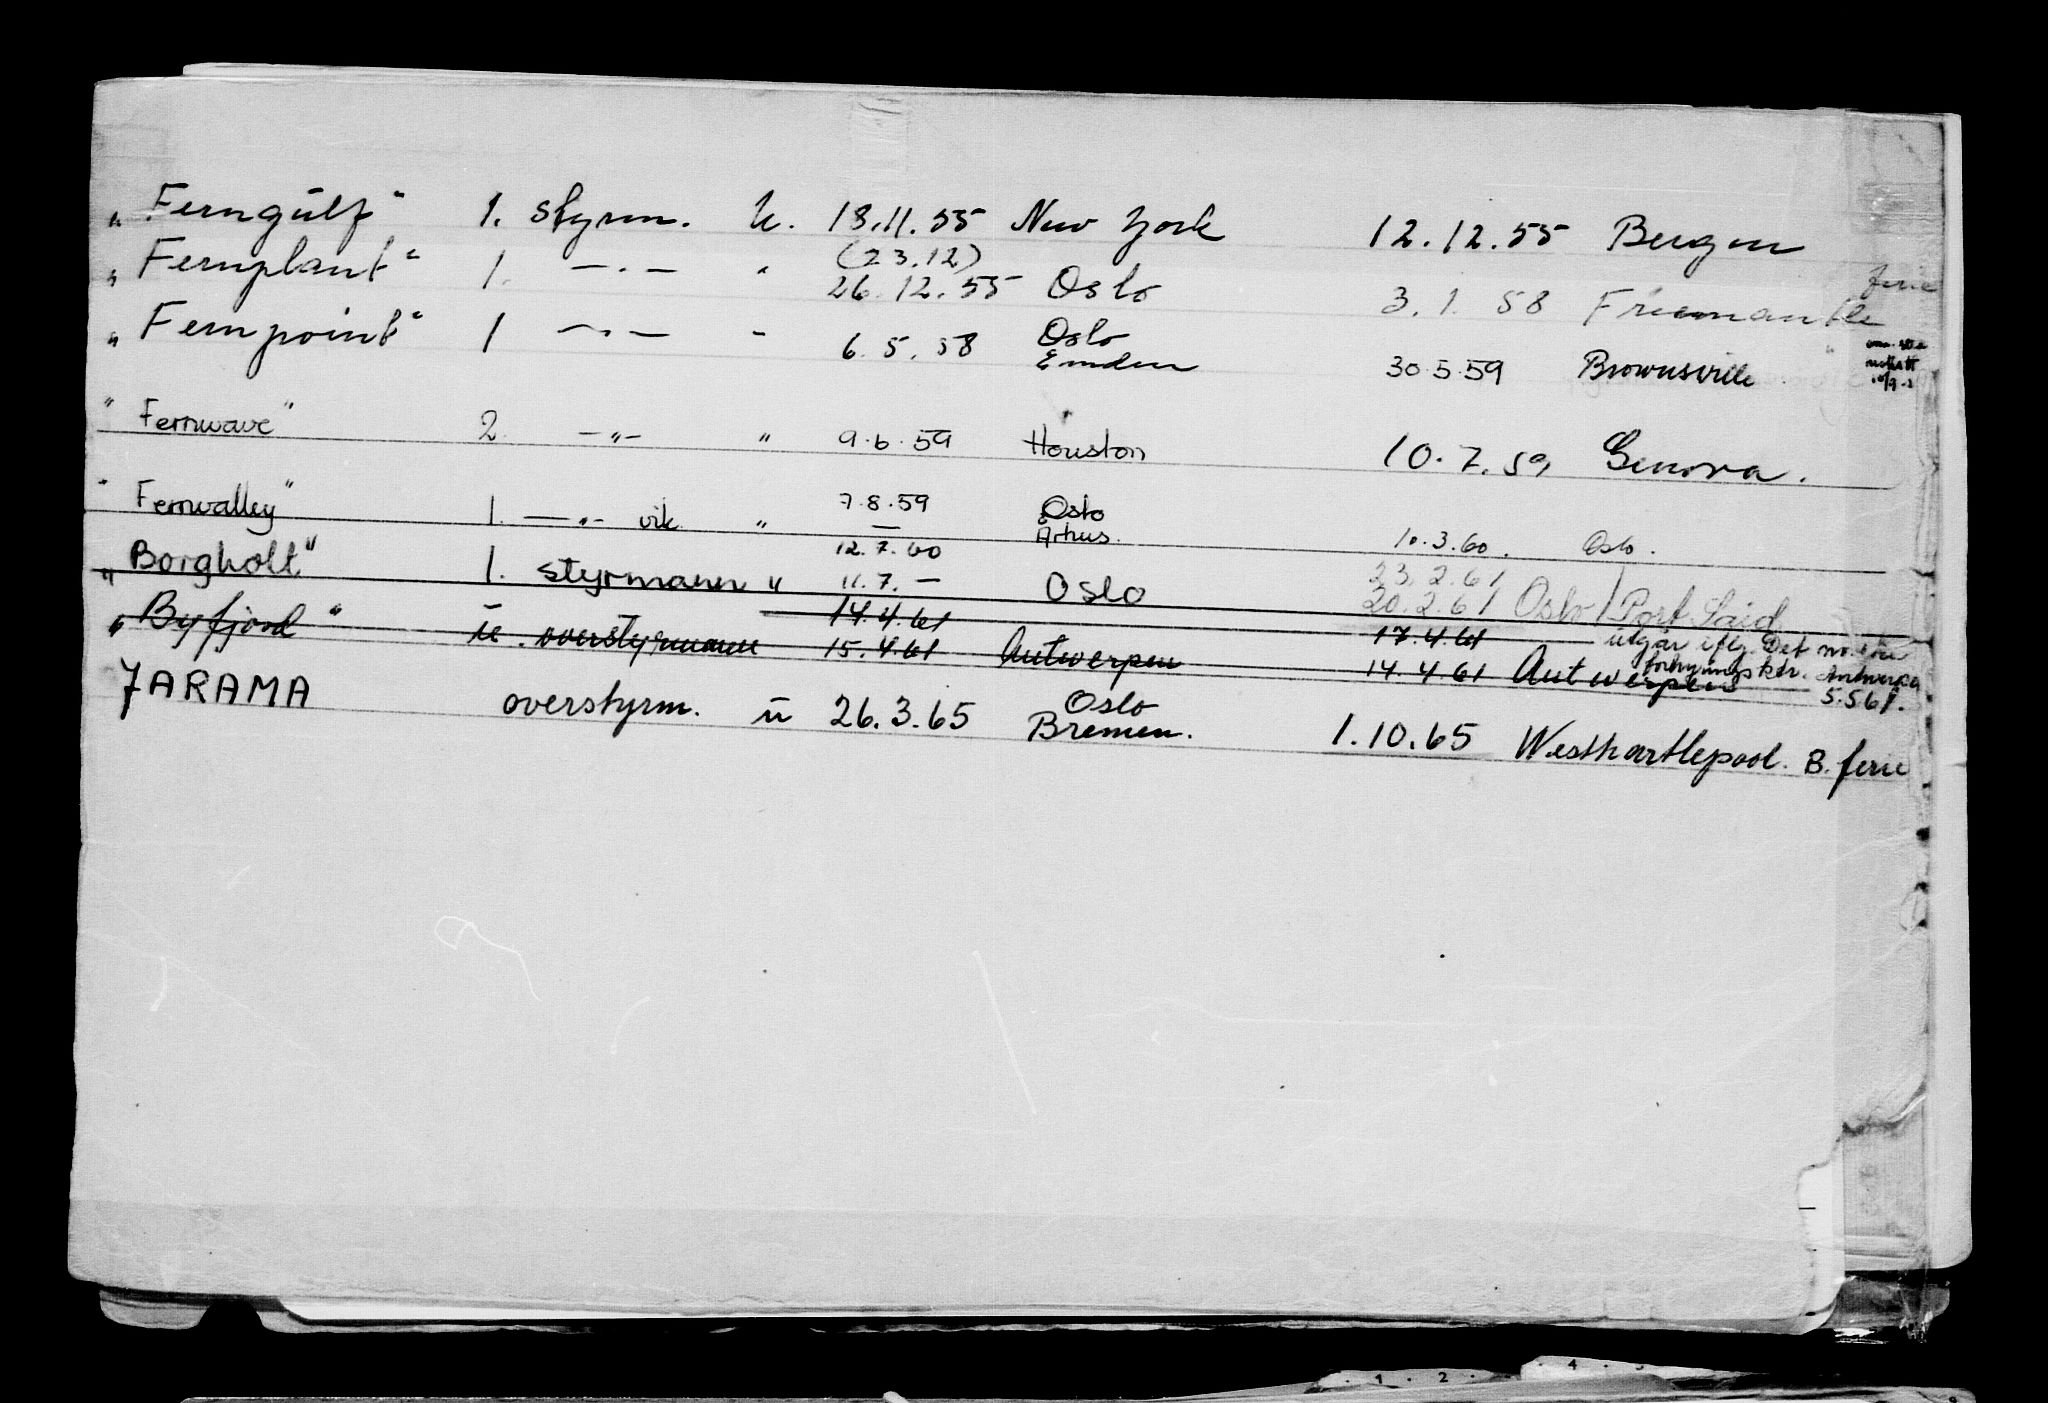 "Ferngulf" 1. styrm. u. 18.11.55 New York 12.12.55 Bergen
(23.12)
"Fernplant" 1. —"— " 26.12.55 Oslo 3.1.58 Freemantle ferie
"Fernpoint" 1 —"— " 6.5.58 Oslo
Emden 30.5.59 Brownsville
"Fernwave" 2. —"— " 9.6.59 Houston 10.7.59 Genova.
"Fernvalley" 1. —"— vik. " 7.8.59 Oslo
Århus. 10.3.60. Oslo.
12.7.60 23.2.61
"Borgholt" 1. styrmann " 11.7.— Oslo 20.2.61 Oslo/Port Said
14.4.61 17.4.61 utgår iflg. Det norske
"Byfjord" u. overstyrmann 15.4.61 Antwerpen 14.4.61 Antwerpen
forhyringsktr. Antwerpen
5.5.61.
JARAMA overstyrm. u 26.3.65 Oslo
Bremen. 1.10.65 Westhartlepool. B. ferie
1 2 4 5